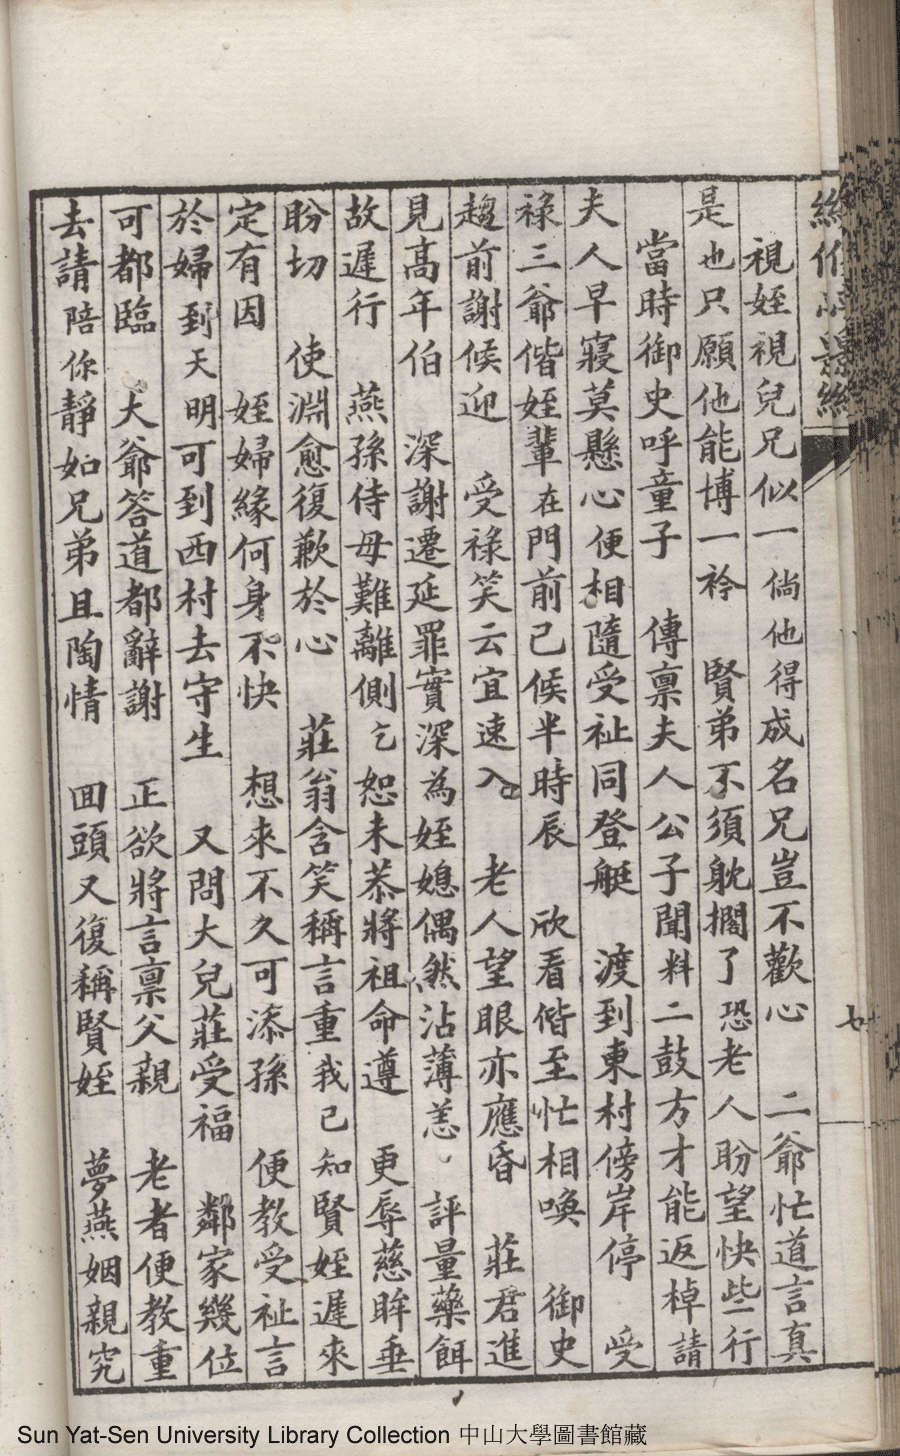 視姪視兒兄似一倘他得成名兄豈不歡心 二爺忙道言真
是也只願他能博一衿 賢弟不須躭擱了恐老人盼望快些行
當時御史呼童子 傳禀夫人公子聞料二鼓方才能返棹請
夫人早寢莫懸心便相隨受祉同登艇 渡到東村傍岸停 受
祿三爺偕姪輩在門前已候半時辰 欣看偕至忙相喚 御史
趨前謝候迎 受祿笑云宜速入 老人望眼亦應昏 莊君進
見高年伯 深謝遷延罪實深為姪媳偶然沾薄恙 評量藥餌
故遲行 燕孫侍母難離側乞恕未恭將祖命遵 更辱慈眸垂
盼切 使淵愈復歉於心 莊翁含笑稱言重我已知賢姪遲來
定有因 姪婦緣何身不快 想來不久可添孫 便教受祉言
於婦到天明可到西村去守生 又問大兒莊受福 鄰家幾位
可都臨 大爺答道都辭謝 正欲將言禀父親 老者便教重
去請陪你靜如兄弟且陶情 回頭又復稱賢姪 夢燕姻親究
Sun Yat-Sen University Library Collection 中山大學圖書館藏